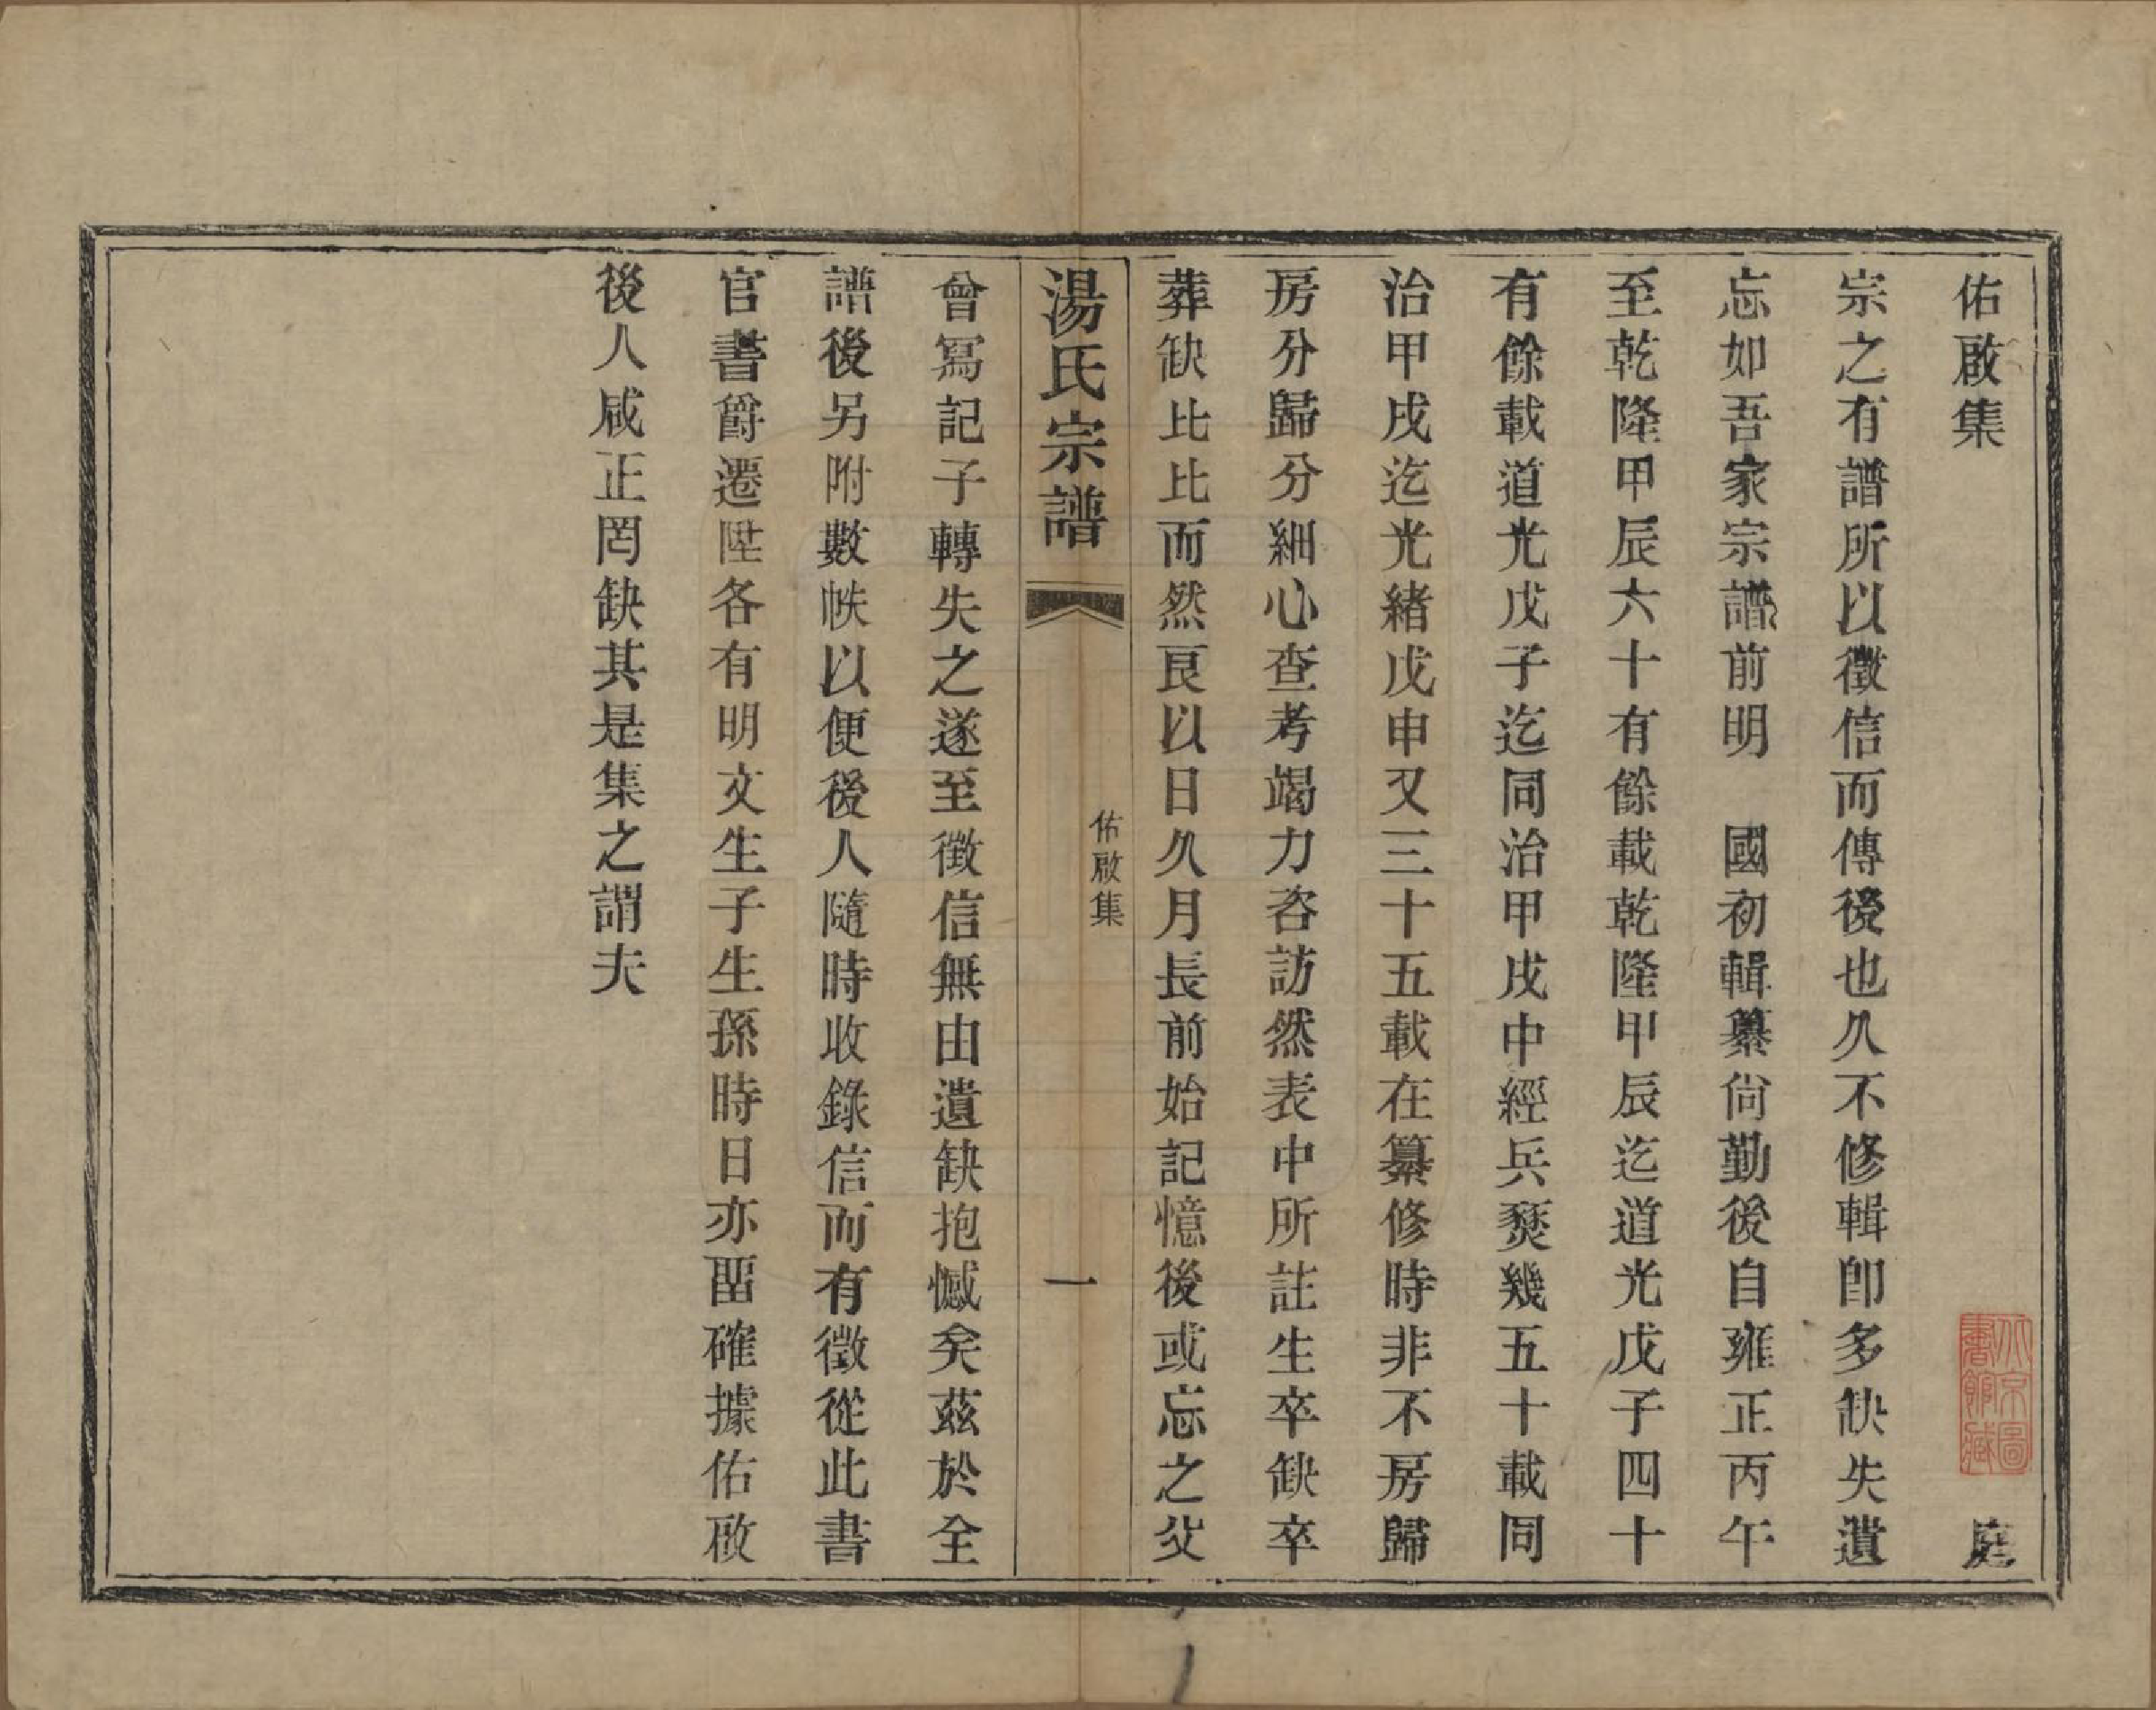 佑啟集　庭
宗之有譜所以徵信而傳後也久不修輯卽多缺失遺
忘如吾家宗譜前明　國初輯纂尙勤後自雍正丙午
至乾隆甲辰六十有餘載乾隆甲辰迄道光戊子四十
有餘載道光戊子迄同治甲戌中經兵燹幾五十載同
治甲戌迄光緒戊申又三十五載在纂修時非不房歸
房分歸分細心查考竭力咨訪然表中所註生卒缺卒
葬缺比比而然良以日久月長前始記憶後或忘之父
湯氏宗譜　佑啟集　一
曾寫記子轉失之遂至徵信無由遺缺抱憾矣茲於全
譜後另附數帙以便後人隨時收錄信而有徵從此書
官書爵遷陞各有明文生子生孫時日亦畱確據佑啟
後人咸正罔缺其是集之謂夫
北京圖
書館藏